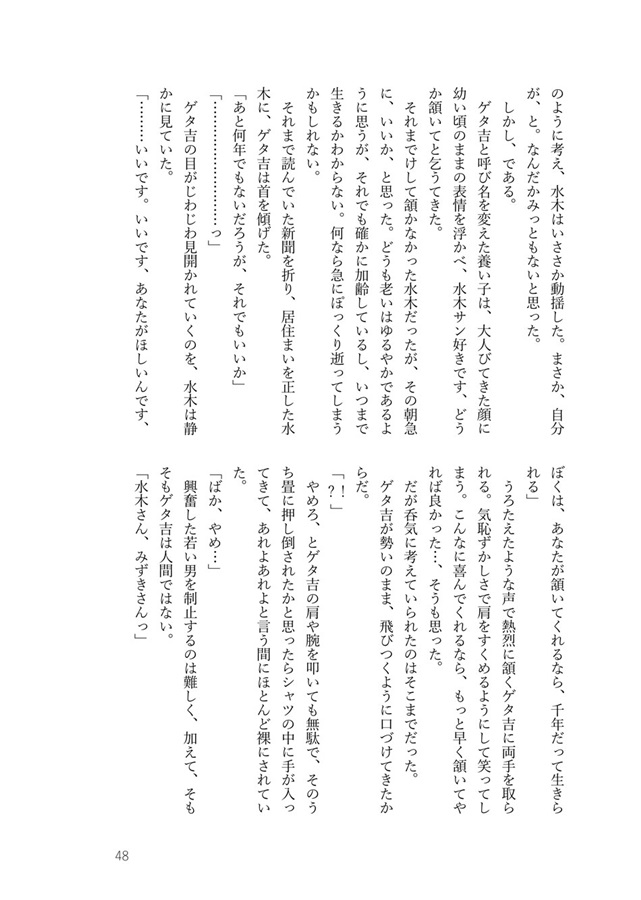 のように考え、水木はいささか動揺した。まさか、自分
が、と。なんだかみっともないと思った。
しかし、である。
ゲタ吉と呼び名を変えた養い子は、大人びてきた顔に
幼い頃のままの表情を浮かべ、水木サン好きです、どう
か頷いてと乞うてきた。
それまでけして頷かなかった水木だったが、その朝急
に、いいか、と思った。どうも老いはゆるやかであるよ
うに思うが、それでも確かに加齢しているし、いつまで
生きるかわからない。何なら急にぽっくり逝ってしまう
かもしれない。
それまで読んでいた新聞を折り、居住まいを正した水
木に、ゲタ吉は首を傾げた。
「あと何年でもないだろうが、それでもいいか」
「……………………っ」
ゲタ吉の目がじわじわ見開かれていくのを、水木は静
かに見ていた。
「………いいです。いいです、あなたがほしいんです、
ぼくは、あなたが頷いてくれるなら、千年だって生きら
れる」
うろたえたような声で熱烈に頷くゲタ吉に両手を取ら
れる。気恥ずかしさで肩をすくめるようにして笑ってし
まう。こんなに喜んでくれるなら、もっと早く頷いてや
れば良かった…、そうも思った。
だが呑気に考えていられたのはそこまでだった。
ゲタ吉が勢いのまま、飛びつくように口づけてきたか
らだ。
「！？」
やめろ、とゲタ吉の肩や腕を叩いても無駄で、そのう
ち畳に押し倒されたかと思ったらシャツの中に手が入っ
てきて、あれよあれよと言う間にほとんど裸にされてい
た。
「ばか、やめ…」
興奮した若い男を制止するのは難しく、加えて、そも
そもゲタ吉は人間ではない。
「水木さん、みずきさんっ」
48